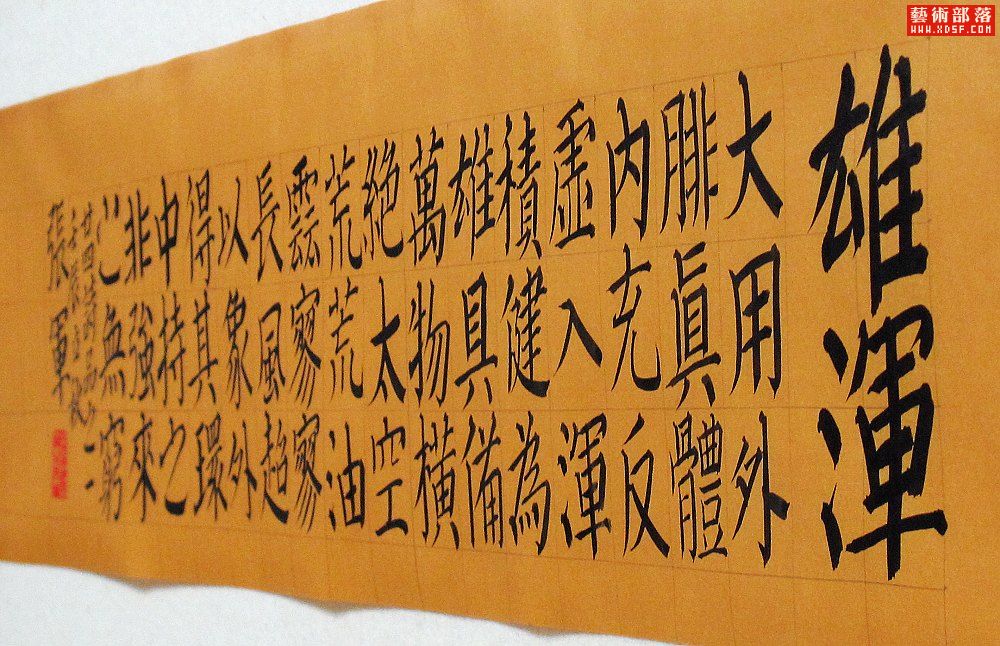 藝術部落
WWW.XDSF.COM
雄渾
大用外
腓眞體
内充反
虛入渾
積健為
雄具備
萬物橫
絕太空
荒荒油
雲寥寥
長風超
以象外
得其環
中持之
非強來
之無窮
張軍